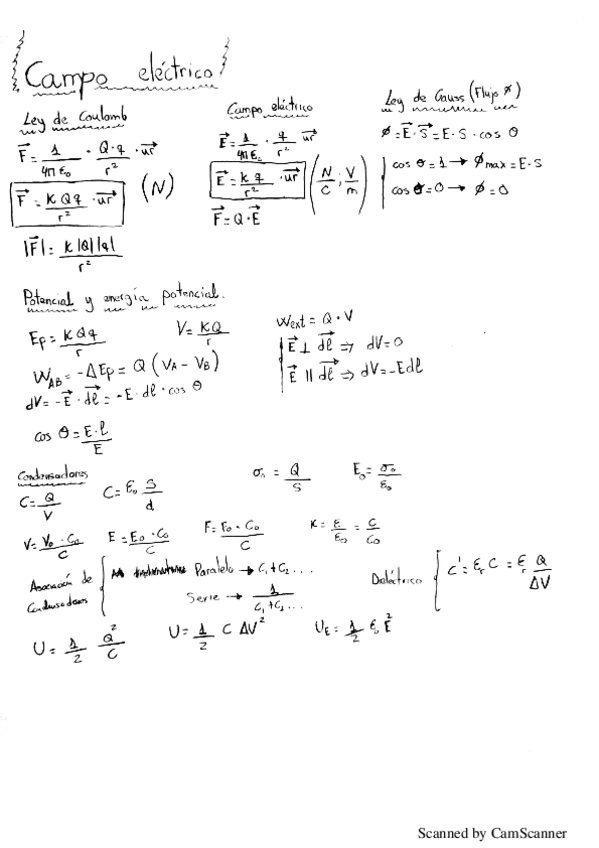 Campo eléctrico
Ley de Coulomb
F⃗ = 1/(4π ε₀) · (Q·q)/r² · u⃗r
F⃗ = (K Q q)/r² · u⃗r (N)
|F⃗| = (K |Q| |q|)/r²
Campo eléctrico
E⃗ = 1/(4π ε₀) · q/r² · u⃗r
E⃗ = (K q)/r² · u⃗r (N/C ; V/m)
F⃗ = Q · E⃗
Ley de Gauss (Flujo ∅)
∅ = E⃗ · S⃗ = E · S · cos θ
cos θ = 1 → ∅max = E · S
cos θ = 0 → ∅ = 0
Potencial y energía potencial.
Ep = (K Q q)/r
V = (K Q)/r
Wext = Q · V
W_AB = -ΔEp = Q (V_A - V_B)
E⃗ ⊥ dl⃗ ⇒ dV = 0
dV = -E⃗ · dl⃗ = -E · dl · cos θ
E⃗ || dl⃗ ⇒ dV = -Edl
cos θ = (E · l)/E
Condensadores
C = Q/V
C = ε₀ S/d
Q/S
E₀ = σ₀/ε₀
V = (V₀ · C₀)/C
E = (E₀ · C₀)/C
F = (F₀ · C₀)/C
K = ε/ε₀ = C/C₀
Asociación de Condensadores
Paralelo → C₁ + C₂ ...
Serie → 1/(C₁ + C₂ ...)
Dieléctrico
C' = εr C = εr Q/ΔV
U = 1/2 Q²/C
U = 1/2 C ΔV²
U_E = 1/2 ε₀ E²
Scanned by CamScanner